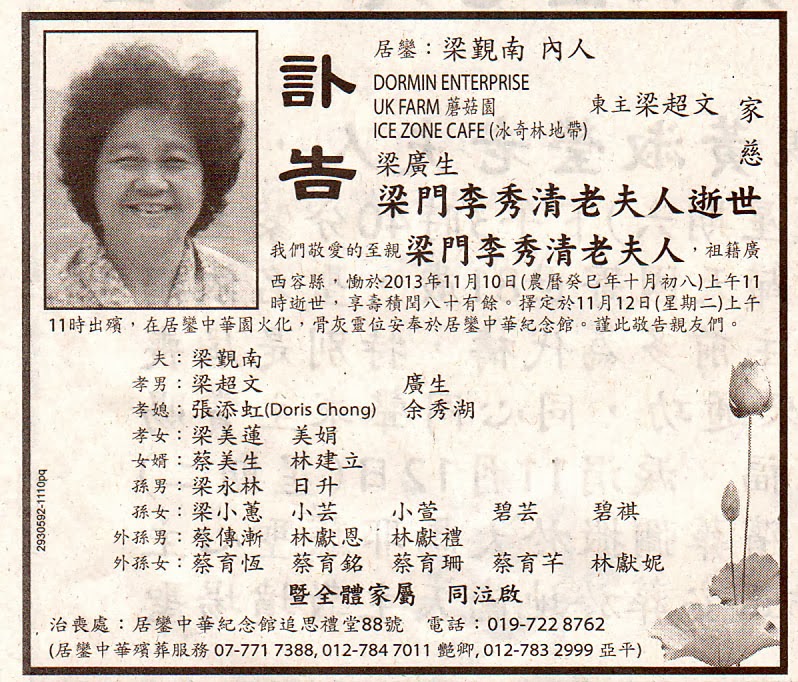 訃告
居鑾：梁觐南 內人
DORMIN ENTERPRISE
UK FARM 蘑菇園
ICE ZONE CAFE (冰奇林地帶)
東主梁超文
家慈
梁廣生
梁門李秀清老夫人逝世
我們敬愛的至親梁門李秀清老夫人，祖籍廣
西容縣，慟於2013年11月10日(農曆癸巳年十月初八)上午11
時逝世，享壽積閏八十有餘。擇定於11月12日(星期二)上午
11時出殯，在居鑾中華園火化，骨灰靈位安奉於居鑾中華紀念館。謹此敬告親友們。
夫：梁觐南
孝男：梁超文 廣生
孝媳：張添虹(Doris Chong) 余秀湖
孝女：梁美蓮 美娟
女婿：蔡美生 林建立
孫男：梁永林 日升
孫女：梁小蕙 小芸 小萱 碧芸 碧祺
外孫男：蔡傳漸 林獻恩 林獻禮
外孫女：蔡育恆 蔡育銘 蔡育珊 蔡育芊 林獻妮
暨全體家屬 同泣啟
治喪處：居鑾中華紀念館追思禮堂88號 電話：019-722 8762
(居鑾中華殯葬服務 07-771 7388, 012-784 7011 艷卿, 012-783 2999 亞平)
2930592-1110pq